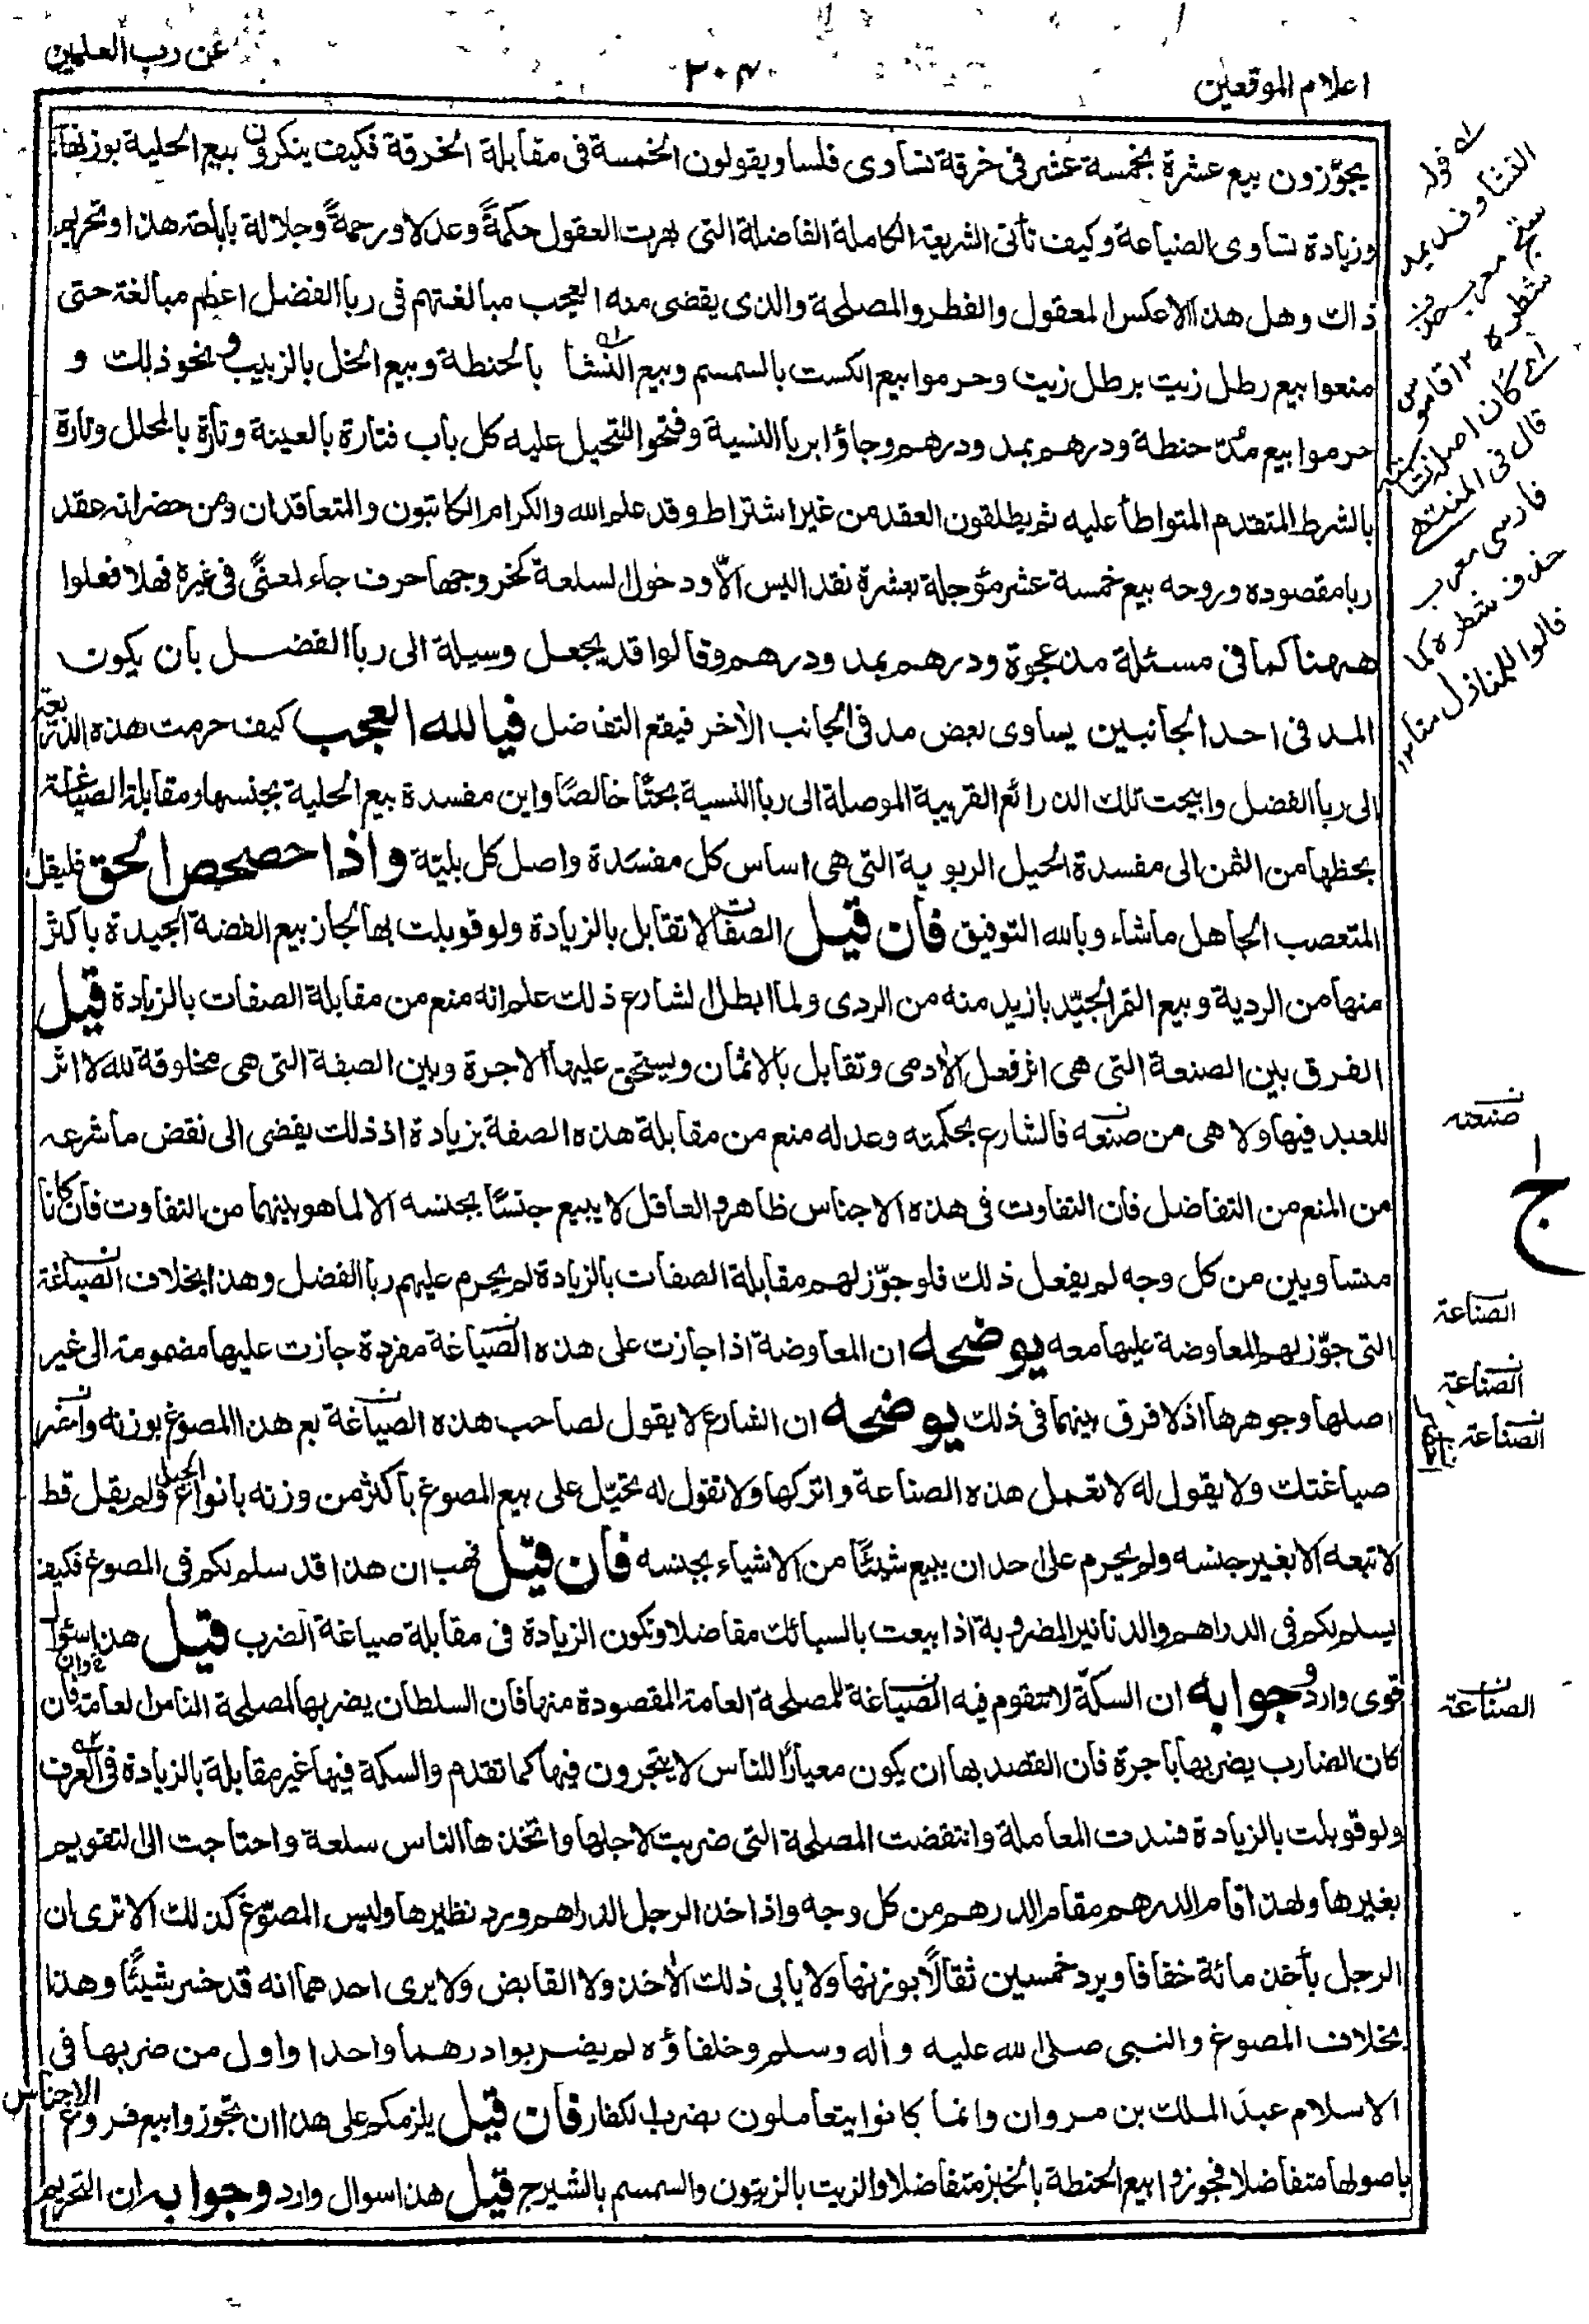 عن رب العلمين
٢٠٤
اعلام الموقعين
يجوّزون بيع عشرة بخمسة عشر فى خرقة تساوى فلسا ويقولون الخمسة فى مقابلة الخرقة فكيف ينكرون بيع الحلية بوزنها
وزيادة تساوى الصناعة وكيف تأتى الشريعة الكاملة الفاضلة التى بهرت العقول حكمةً وعدلا ورحمةً وجلالة باباحة هذا وتحريم
ذاك وهل هذا الا عكس المعقول والفطر والمصلحة والذى يقضى منه العجب مبالغتهم فى ربا الفضل اعظم مبالغة حتى
منعوا بيع رطل زيت برطل زيت وحرموا بيع الكسب بالسمسم وبيع النشا بالحنطة وبيع الخل بالزبيب ونحو ذلك و
حرموا بيع مُدّ حنطة ودرهم بمد ودرهم وجاؤا بربا النسية وفتحوا للتحيل عليه كل باب فتارة بالعينة وتارة بالمحلل وتارة
بالشرط المتقدم المتواطأ عليه ثم يطلقون العقد من غير اشتراط وقد علم الله والكرام الكاتبون والمتعاقدان ومن حضر انه عقد
ربا مقصوده وروحه بيع خمسة عشر مؤجلة بعشرة نقدا ليس الّا ودخول السلعة كخروجها حرف جاء لمعنًى فى غيره فهلا فعلوا
ههنا كما فى مسئلة مد عجوة ودرهم بمد ودرهم وقالوا قد يجعل وسيلة الى ربا الفضل بان يكون
المد فى احد الجانبين يساوى بعض مد فى الجانب الآخر فيقع التفاضل فيا لله العجب كيف حرمت هذه الذريعة
الى ربا الفضل وابيحت تلك الذرائع القريبة الموصلة الى ربا النسية بحتًا خالصًا واين مفسدة بيع الحلية بجنسها ومقابلة الصياغة
بحظها من الثمن الى مفسدة الحيل الربوية التى هى اساس كل مفسدة واصل كل بليّة واذا حصحص الحق فليقل
المتعصب الجاهل ماشاء وبالله التوفيق فان قيل الصفات لا تقابل بالزيادة ولو قوبلت بها لجاز بيع الفضة الجيدة باكثر
منها من الردية وبيع التمر الجيّد بازيد منه من الردى ولما ابطل الشارع ذلك علم انه منع من مقابلة الصفات بالزيادة قيل
الفرق بين الصنعة التى هى اثر فعل الآدمى وتقابل بالاثمان ويستحق عليها الاجرة وبين الصفة التى هى مخلوقة لله لا اثر
للعبد فيها ولا هى من صنعه فالشارع بحكمته وعدله منع من مقابلة هذه الصفة بزيادة اذ ذلك يفضى الى نقض ما شرعه
من المنع من التفاضل فان التفاوت فى هذه الاجناس ظاهر والعاقل لا يبيع جنسًا بجنسه الا لما هو بينهما من التفاوت فان كانا
متساويين من كل وجه لم يفعل ذلك فلو جوّز لهم مقابلة الصفات بالزيادة لم يحرم عليهم ربا الفضل وهذا بخلاف الصياغة
التى جوّز لهم المعاوضة عليها معه يوضحه ان المعاوضة اذا جازت على هذه الصياغة مفردة جازت عليها مضمومة الى غير
اصلها وجوهرها اذ لا فرق بينهما فى ذلك يوضحه ان الشارع لا يقول لصاحب هذه الصياغة بع هذا المصوغ بوزنه واخسر
صياغتك ولا يقول له لا تعمل هذه الصناعة واتركها ولا تقول له تحيّل على بيع المصوغ باكثر من وزنه بانواع الحيل ولم يقل قط
لا تبعه الا بغير جنسه ولم يحرم على احد ان يبيع شيئًا من الاشياء بجنسه فان قيل فهب ان هذا قد سلم لكم فى المصوغ فكيف
يسلم لكم فى الدراهم والدنانير المضروبة اذا بيعت بالسبائك مفاضلا وتكون الزيادة فى مقابلة صياغة الضرب قيل هذا سؤال
قوى وارد وجوابه ان السكّة لا تتقوم فيه الصياغة للمصلحة العامة المقصودة منها فان السلطان يضربها لمصلحة الناس العامة وان
كان الضارب يضربها باجرة فان القصد بها ان يكون معيارًا للناس لا يتجرون فيها كما تقدم والسكة فيها غير مقابلة بالزيادة فى العرف
ولو قوبلت بالزيادة فسدت المعاملة وانتقضت المصلحة التى ضربت لاجلها واتخذها الناس سلعة واحتاجت الى التقويم
بغيرها ولهذا قام الدرهم مقام الدرهم من كل وجه واذا اخذ الرجل الدراهم ورد نظيرها وليس المصوغ كذلك الا ترى ان
الرجل يأخذ مائة خفافا ويرد خمسين ثقالًا بوزنها ولا يابى ذلك الآخذ ولا القابض ولا يرى احدهما انه قد خسر شيئًا وهذا
بخلاف المصوغ والنبى صلى الله عليه وآله وسلم وخلفاؤه لم يضربوا درهما واحدا واول من ضربها فى
الاسلام عبد الملك بن مروان وانما كانوا يتعاملون بضرب الكفار فان قيل يلزمكم على هذا ان تجوزوا بيع فروع الاجناس
باصولها متفاضلا فجوزوا بيع الحنطة بالخبز متفاضلا والزيت بالزيتون والسمسم بالشيرج قيل هذا سوال وارد وجوابه ان التحريم
له قوله
النشا وقد يمد
معرب حذف
شطره ١٢ قاموس
قال فى المنتهى
فارسى معرب
حذف شطره كما
قالوا للمنازل منا ١٢
صنعته
ج
الصناعة
الصناعة
الصناعة
الصناعة